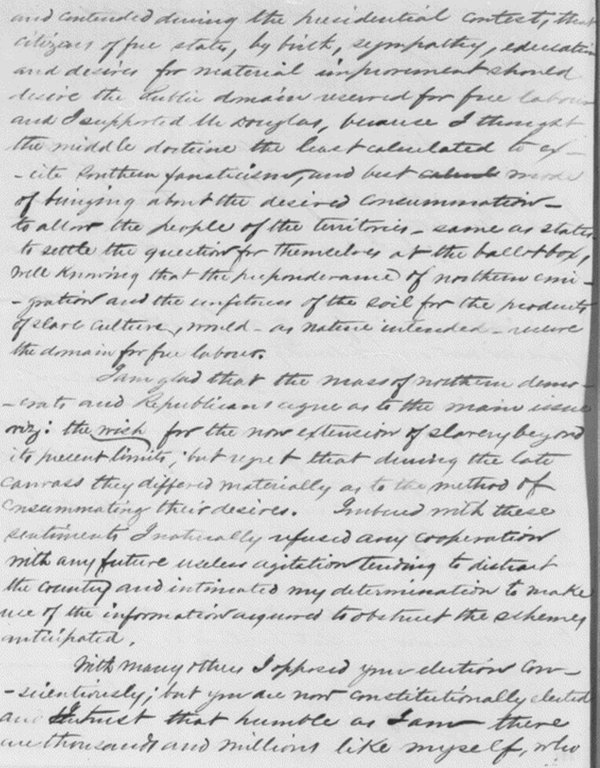 and contended during the presidential contest, that
citizens of free states, by birth, sympathy, education
and desires for material improvement should
desire the Public domain reserved for free labour
and I supported Mr Douglas, because I thought
the middle doctrine the least calculated to ex-
-cite Southern fanaticism, and best mode
of bringing about the desired consummation -
to allow the people of the territories - same as states
to settle the question for themselves at the ballot box,
well knowing that the preponderance of northern emi-
-gration and the unfitness of the soil for the products
of slave culture, would - as nature intended - secure
the domain for free labour.
I am glad that the mass of northern demo-
-crats and Republicans agree as to the main issue
viz: the wish for the non extension of slavery beyond
its present limits, but regret that during the late
canvass they differed materially as to the method of
consummating their desires. Imbued with these
sentiments I naturally refused any cooperation
with any future useless agitation tending to distract
the country and intimated my determination to make
use of the information acquired to obstruct the schemes
anticipated.
With many others I opposed your election con-
-scientiously; but you are now constitutionally elected
and I trust that humble as I am there
are thousands and millions like myself, who